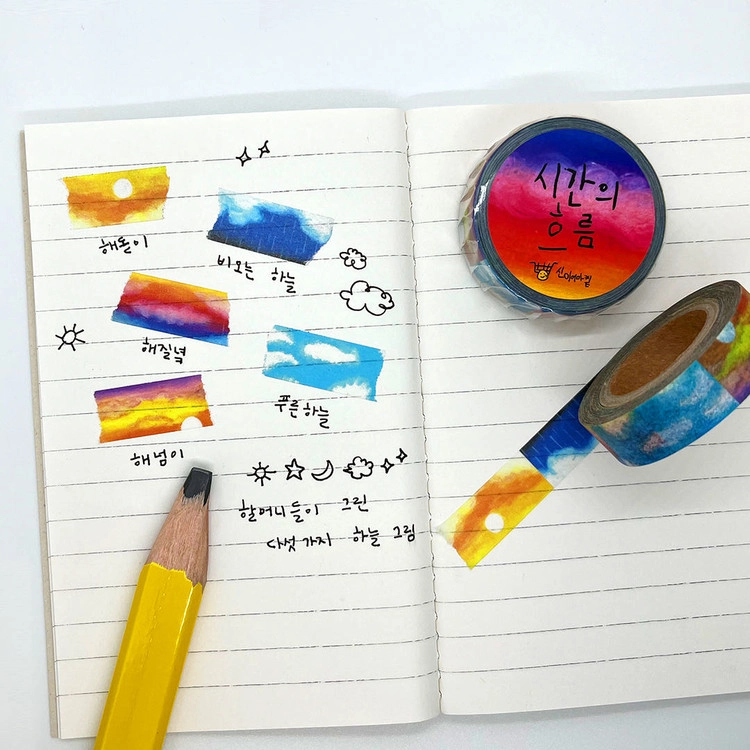 해돋이
비오는 하늘
해질녘
푸른하늘
해넘이
할머니들이 그린
다섯가지 하늘 그림
시간의
흐름
신이어마켙